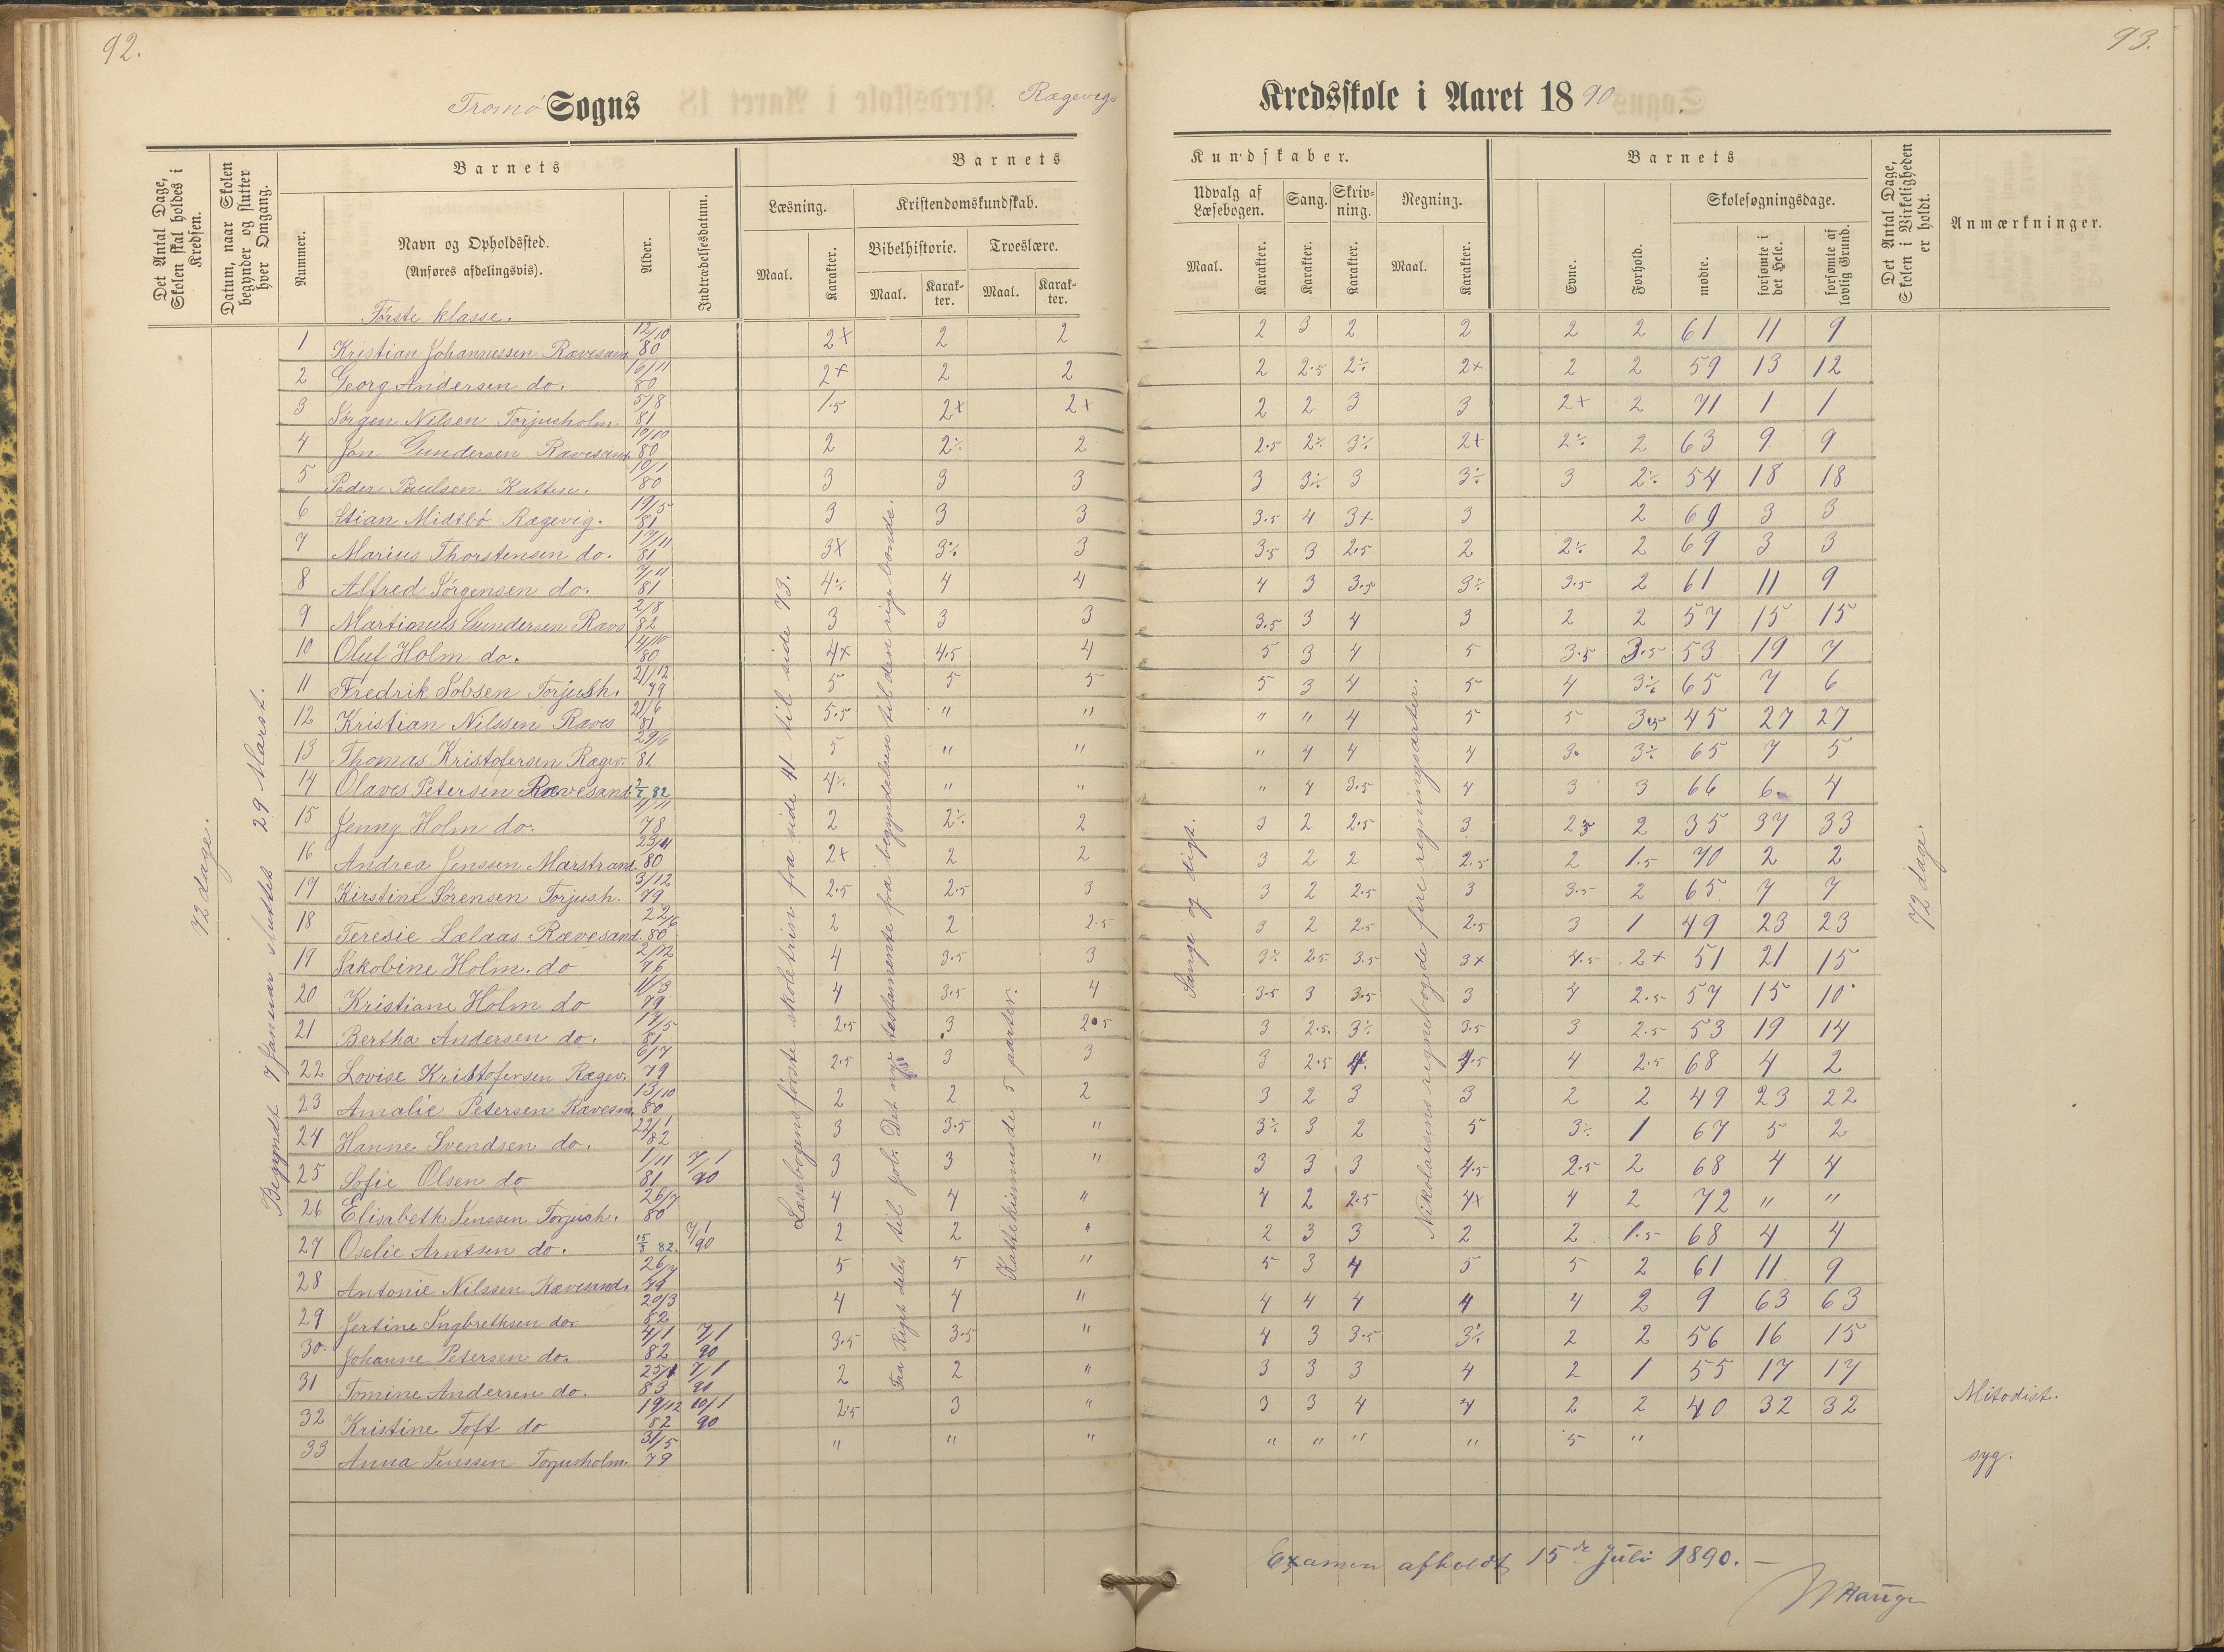 92.
93.
Tromø Sogns
Rægevigs
Kredsskole i Aaret 1890.
Det Antal Dage, Skolen skal holdes i Kredsen.
Datum, naar Skolen begynder og slutter hver Omgang.
Barnets
Nummer.
Navn og Opholdssted.
(Anføres afdelingsvis).
Alder.
Indtrædelsesdatum.
Barnets
Kundskaber.
Læsning.
Kristendomskundskab.
Bibelhistorie.
Troeslære.
Maal.
Karakter.
Maal.
Karakter.
Maal.
Karakter.
Udvalg af Læsebogen.
Sang.
Skrivning.
Regning.
Maal.
Karakter.
Karakter.
Karakter.
Maal.
Karakter.
Barnets
Evne.
Forhold.
Skolesøgningsdage.
mødte.
forsømte i det Hele.
forsømte af lovlig Grund.
Det Antal Dage, Skolen i Virkeligheden er holdt.
Anmærkninger.
Første klasse.
72 dage.
Begyndt 7 Januar sluttet 29 Marst.
Læsebogens første skoletrin fra side 41 til side 73.
Fra Riget deles til Job. Det nye testamente fra begyndelsen til den rige bonde.
Kattekismus de 5 parter.
Sange og digt.
Nikolaisens regnebog de fire regningsarter.
72 dage.
1 Kristian Johannessen Rævesand 12/10 80 2+ 2 2 2 3 2 2 2 2 61 11 9
2 Georg Andersen do. 16/11 80 2+ 2 2 2 2.5 2÷ 2+ 2 2 59 13 12
3 Jørgen Nilsen Torjusholm. 5/8 81 1.5 2+ 2+ 2 2 3 3 2+ 2 71 1 1
4 Jon Gundersen Rævesand 10/10 80 2 2÷ 2 2.5 2÷ 3÷ 2+ 2÷ 2 63 9 9
5 Peder Paulsen Katten. 10/1 80 3 3 3 3 3÷ 3 3÷ 3 2÷ 54 18 18
6 Stian Midtbø Rægevig. 19/5 81 3 3 3 3.5 4 3+ 3 2 69 3 3
7 Marius Thorstensen do. 17/11 81 3+ 3÷ 3 3.5 3 2.5 2 2÷ 2 69 3 3
8 Alfred Jørgensen do. 7/11 81 4÷ 4 4 4 3 3.5 3÷ 3.5 2 61 11 9
9 Martinius Gundersen Ræves 2/8 82 3 3 3 3.5 3 4 3 2 2 57 15 15
10 Oluf Holm do. 14/10 80 4+ 4.5 4 5 3 4 5 3.5 3.5 53 19 7
11 Fredrik Jobsen Torjush. 21/12 79 5 5 5 5 3 4 5 4 3÷ 65 7 6
12 Kristian Nilssen Ræves 21/6 81 5.5 " " " " 4 5 5 3.5 45 27 27
13 Thomas Kristofersen Rægev. 29/6 81 5 " " " 4 4 4 3. 3÷ 65 7 5
14 Olaves Petersen Rævesand. 82 4÷ " " " 4 3.5 4 3 3 66 6. 4
15 Jenny Holm do. 4/11 78 2 2÷ 2 3 2 2.5 3 2.5 2 35 37 33
16 Andrea Jenssen Marstrand. 23/11 80 2+ 2 2 3 2 2 2.5 2 1.5 70 2 2
17 Kirstine Sørensen Torjush. 3/12 79 2.5 2.5 3 3 2 2.5 3 3.5 2 65 7 7
18 Teresie Lælaas Rævesand. 22/6 80 2 2 2.5 3 2 2.5 2.5 3 1 49 23 23
19 Jakobine Holm. do 2/12 76 4 3.5 3 3÷ 2.5 3.5 3+ 4.5 2+ 51 21 15
20 Kristiane Holm do 11/3 79 4 3.5 4 3.5 3 3.5 3 4 2.5 57 15 10
21 Bertha Andersen do. 17/5 81 2.5 3 2.5 3 2.5 3÷ 3.5 3 2.5 53 19 14
22 Lovise Kristofersen Rægev. 6/7 79 2.5 3 3 3 2.5 4. 4.5 4 2.5 68 4 2
23 Amalie Petersen Rævesan. 13/10 80 2 2 2 3 2 3 3 2 2 49 23 22
24 Hanne Svendsen do. 22/1 82 3 3.5 " 3÷ 3 2 5 3÷ 1 67 5 2
25 Sofie Olsen do 1/11 81 7/1 90 3 3 " 3 3 3 4.5 2.5 2 68 4 4
26 Elisabeth Jenssen Torjush. 26/7 80 4 4 " 4 2 2.5 4+ 4 2 72 " "
27 Oselie Arntsen do. 15/3 82. 7/1 90 2 2 " 2 3 3 2 2 1.5 68 4 4
28 Antonie Nilssen Rævesand. 26/7 79 5 5 " 5 3 4 5 5 2 61 11 9
29 Jertine Ingbrethsen do. 20/3 82 4 4 " 4 4 4 4 4 2 9 63 63
30. Johanne Petersen do. 4/1 82 7/1 90 3.5 3.5 " 4 3 3.5 3÷ 2 2 56 16 15
31 Tomine Andersen do. 25/1 83 7/1 90 2 2 " 3 3 3 4 2 1 55 17 17
32 Kristine Toft do 19/12 82 10/1 90 2.5 3 " 3 3 4 4 2 2 40 32 32 Mitodist.
33 Anna Jenssen Torjusholm. 31/5 79 " " " " " " " 5 " syg.
Examen afholdt 15de Juli 1890. —
Hauge